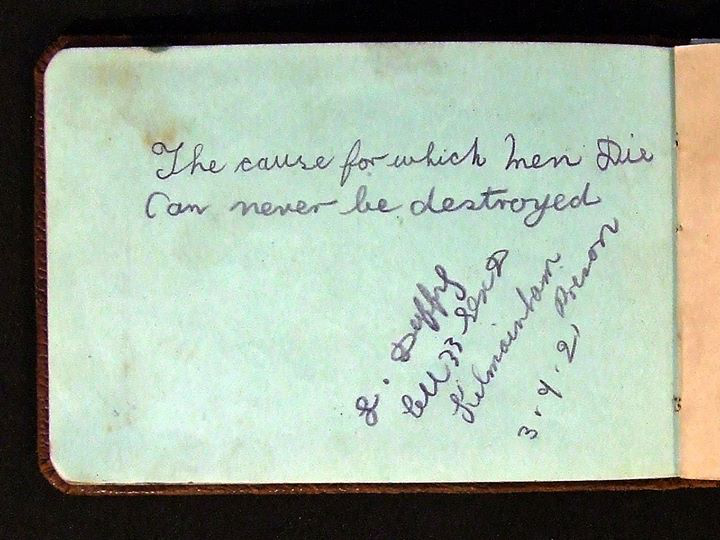 The cause for which Men Die
Can never be destroyed
Duffy
Cell 33
Kilmainham
Prison